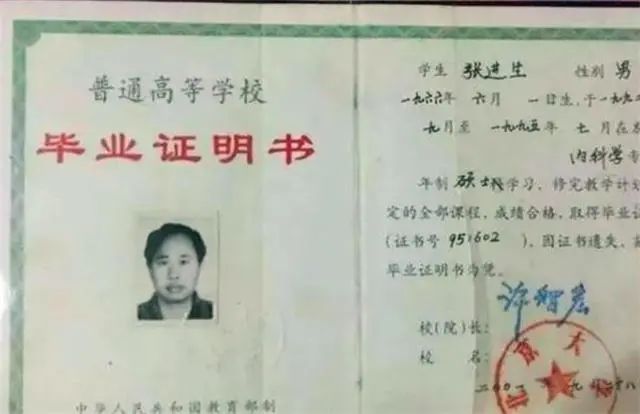 普通高等学校
毕业证明书
中华人民共和国教育部制
学生 张进生 性别 男
一九六六年 六月 一日生,于一九九二
九月至一九九五年 七月在
内科学专
年制 硕士 学习,修完教学计划
定的全部课程,成绩合格,取得毕业证
(证书号 951602 ),因证书遗失,
毕业证明书为凭。
校(院)长:
校 名: